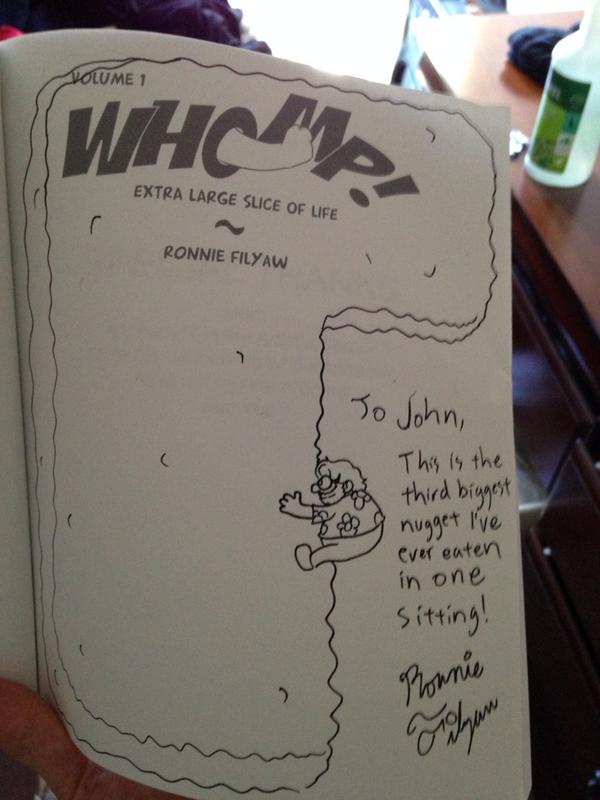 VOLUME 1
WHOMP!
EXTRA LARGE SLICE OF LIFE
~
RONNIE FILYAW
To John,
This is the
third biggest
nugget I've
ever eaten
in one
sitting!
Ronnie
Filyaw